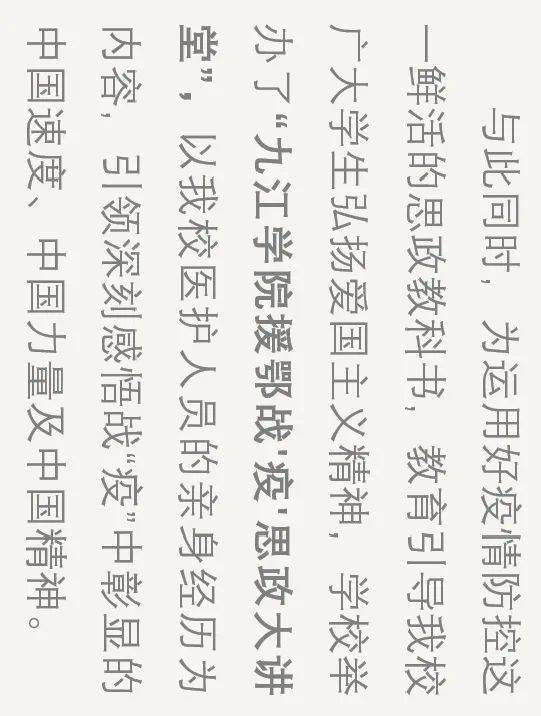 与此同时，为运用好疫情防控这
一鲜活的思政教科书，教育引导我校
广大学生弘扬爱国主义精神，学校举
办了“九江学院援鄂战'疫'思政大讲
堂”，以我校医护人员的亲身经历为
内容，引领深刻感悟战“疫”中彰显的
中国速度、中国力量及中国精神。